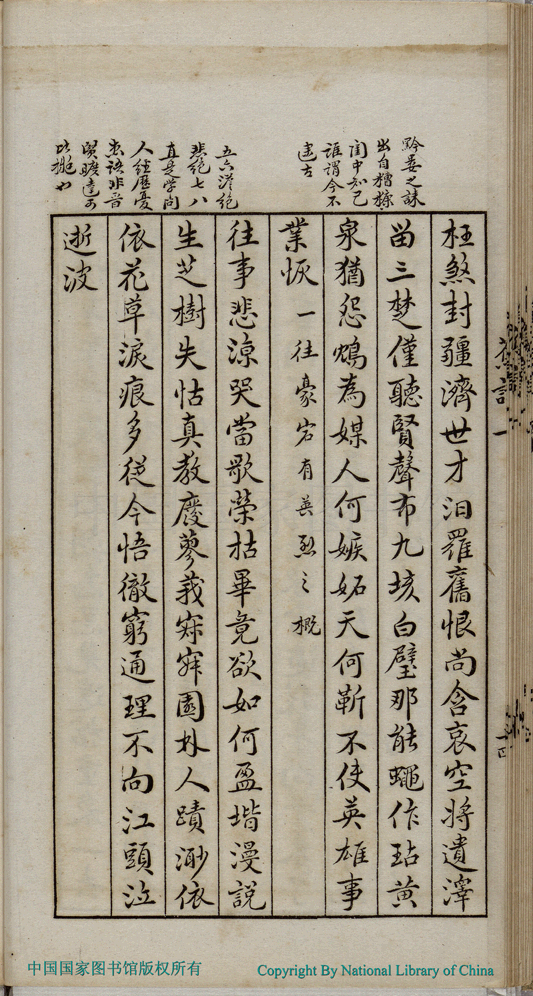 黔婁之誄
出自糟糠
閨中知己
誰謂今不
逮古
枉煞封疆濟世才汨羅舊恨尚含哀空將遺澤
留三楚僅聽賢聲布九垓白璧那能蠅作玷黃
泉猶怨鴆為媒人何嫉妬天何靳不使英雄事
業恢 一往豪宕有英烈之概
五六淒絕
悲絕七八
直是學問
人經歷憂
患語非昔
賢曠達可
比擬也
往事悲涼哭當歌榮枯畢竟欲如何盈堦漫說
生芝樹失怙真教廢蓼莪寂寂園林人蹟渺依
依花草淚痕多從今悟徹窮通理不向江頭泣
逝波
中国国家图书馆版权所有
Copyright By National Library of China